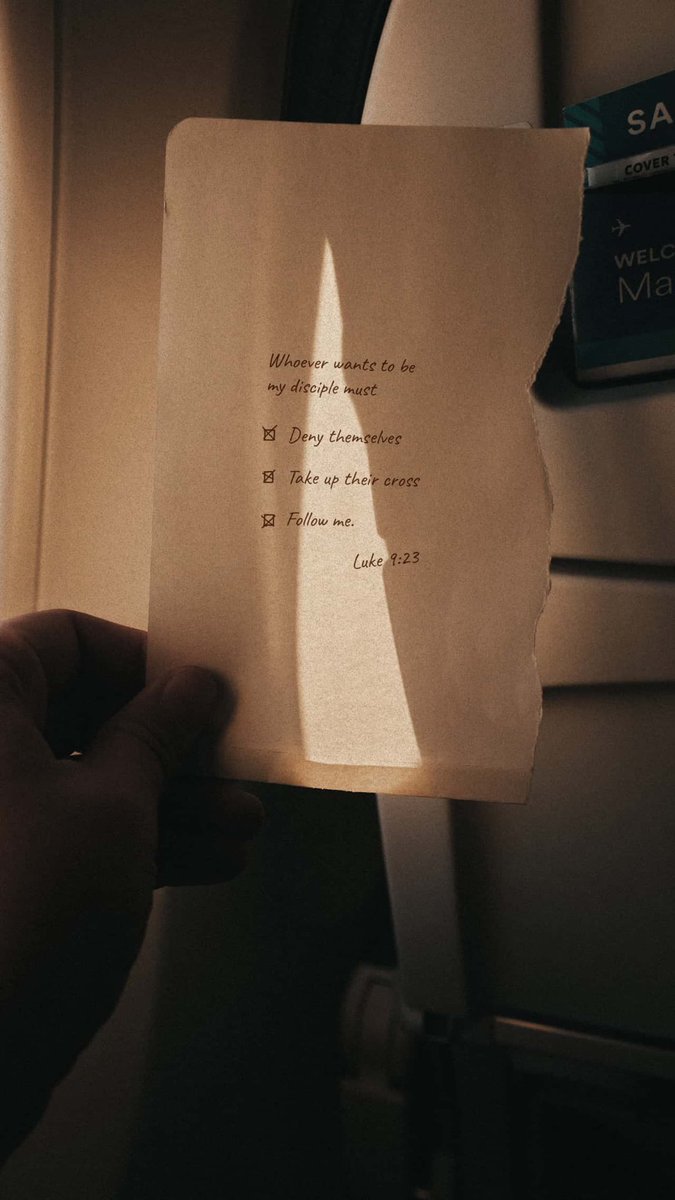 SA
COVER
WELC
Ma
Whoever wants to be
my disciple must
☒ Deny themselves
☒ Take up their cross
☒ Follow me.
Luke 9:23